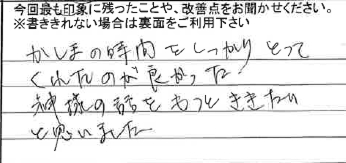 今回最も印象に残ったことや、改善点をお聞かせください。
※書ききれない場合は裏面をご利用下さい
かしまの時間をしっかりとって
くれたのが良かった。
神様の話をもっとききたい
と思いました